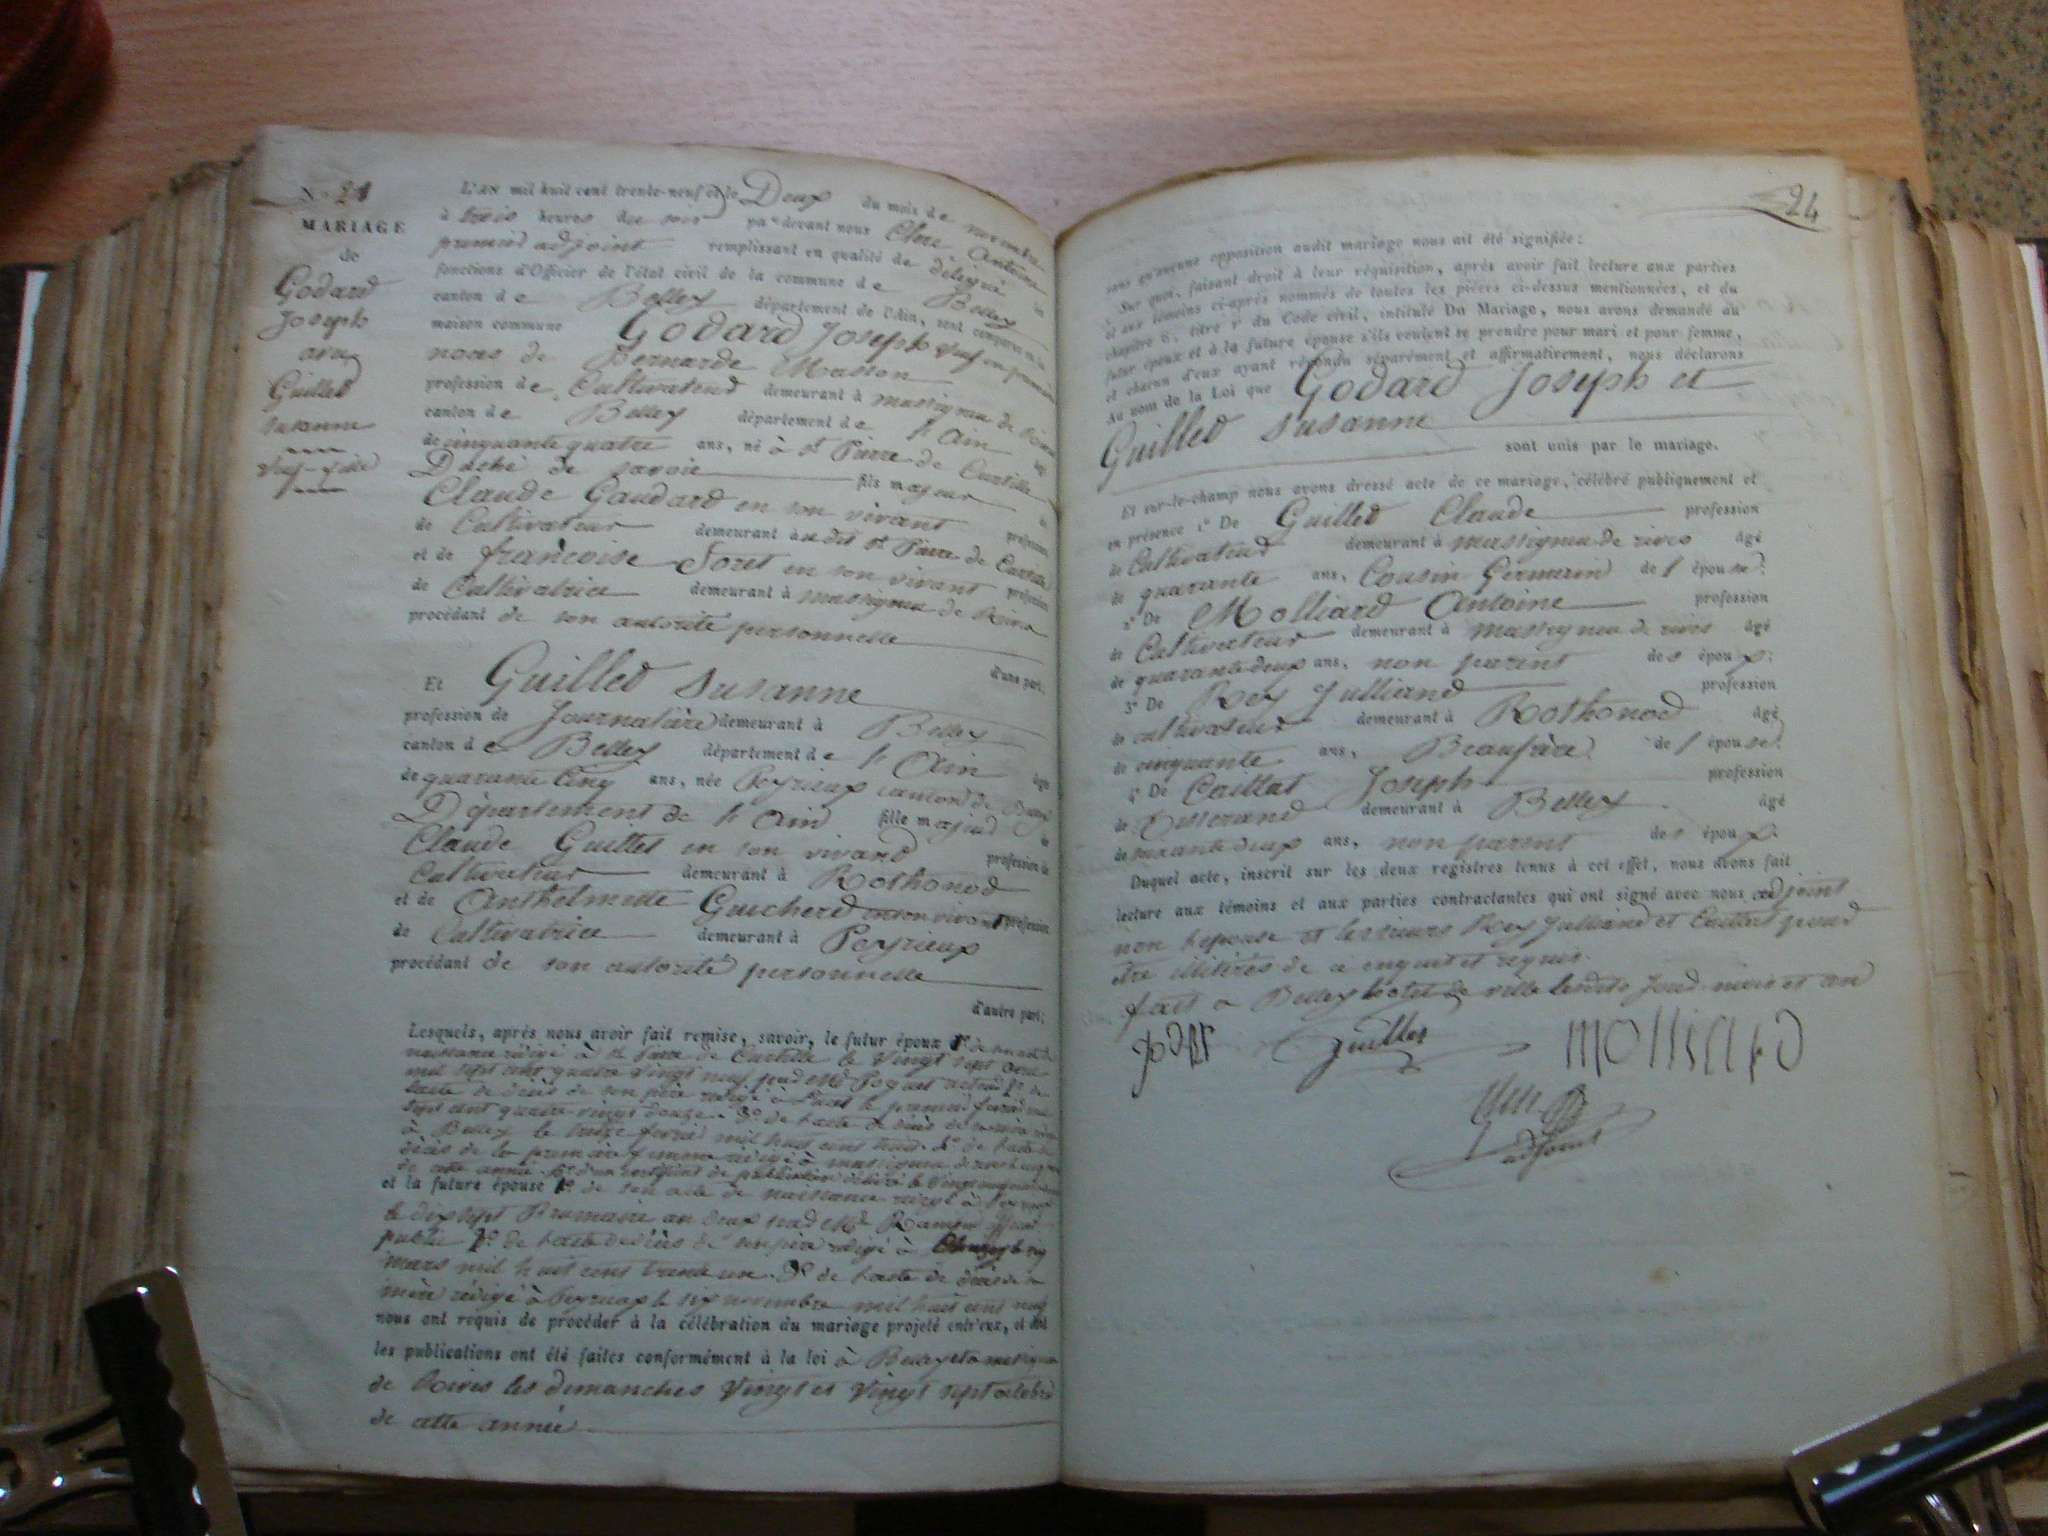 N° 21
MARIAGE
de
Godard
Joseph
avec
Guilled
Susanne
Veuf - fille
L'an mil huit cent trente-neuf et le Deux du mois de novembre
à trois heures du soir par devant nous Antoine
premier adjoint remplissant en qualité de délégué les
fonctions d'Officier de l'état civil de la commune de Belley
canton de Belley département de l'Ain, sont comparus en la
maison commune Godard Joseph veuf en premières
noces de Bernarde Masson
profession de Cultivateur demeurant à massignieu de rives
canton de Belley département de l'Ain âgé
de cinquante quatre ans, né à St Pierre de Curtille
Duché de savoie fils majeur de
Claude Gaudard en son vivant profession
de Cultivateur demeurant à dit St Pierre de Curtille
et de françoise Foret en son vivant profession
de Cultivatrice demeurant à massigneu de Rives
procédant de son autorité personnelle
d'une part;
Et Guilled Susanne
profession de Journalière demeurant à Belley
canton de Belley département de l'Ain âgée
de quarante cinq ans, née Peyrieux canton de Belley
Département de l'Ain fille majeure de
Claude Guillet en son vivand profession de
Cultivateur demeurant à Rothonod
et de Anthelmette Guicherd en son vivant profession
de Cultivatrice demeurant à Peyrieux
procédant de son autorité personnelle
d'autre part;
Lesquels, après nous avoir fait remise, savoir, le futur époux 1° de son acte de
naissance rédigé à St Pierre de Curtille le vingt sept
mil sept cent quatre vingt neuf
l'acte de décès de son père rédigé à le premier
sept cent quatre vingt douze. 3° de l'acte de décès de sa mère
à Belley le treize mil huit cent huit. 4° de l'acte de
décès de la première femme rédigé à massigneu de rives
de cette année. 5° d'un certificat de publication délivré le vingt
et la future épouse 1° de son acte de naissance rédigé à Peyrieux
le dix sept Brumaire an deux
public 2° de l'acte de décès de son père rédigé à le six
mars mil huit cent trente un. 3° de l'acte de décès de sa
mère rédigé à Peyrieux le six novembre mil huit cent neuf
nous ont requis de procéder à la célébration du mariage projeté entr'eux, et dont
les publications ont été faites conformément à la loi à Belley et à massigneu
de Rives les dimanches vingt et vingt sept octobre
de cette année
24
sans qu'aucune opposition audit mariage nous ait été signifiée;
Sur quoi, faisant droit à leur réquisition, après avoir fait lecture aux parties
et aux témoins ci-après nommés de toutes les pièces ci-dessus mentionnées, et du
chapitre 6, titre V du Code civil, intitulé Du Mariage, nous avons demandé au
futur époux et à la future épouse s'ils veulent se prendre pour mari et pour femme,
et chacun d'eux ayant répondu séparément et affirmativement, nous déclarons
au nom de la Loi que Godard Joseph et
Guilled Susanne sont unis par le mariage.
Et sur-le-champ nous avons dressé acte de ce mariage, célébré publiquement et
en présence 1° De Guilled Claude profession
de Cultivateur demeurant à massigneu de rives âgé
de quarante ans, Cousin Germain de l'épouse;
2° De Molliard Antoine profession
de Cultivateur demeurant à massigneu de rives âgé
de quarante deux ans, non parent des époux;
3° De Rey Julliand profession
de cultivateur demeurant à Rothonod âgé
de cinquante ans, Beaufrère de l'épouse;
4° De Caillat Joseph profession
de Tisserand demeurant à Belley âgé
de deux ans, non parent des époux.
Duquel acte, inscrit sur les deux registres tenus à cet effet, nous avons fait
lecture aux témoins et aux parties contractantes qui ont signé avec nous adjoint
non l'epouse et les sieurs Rey Julliand et Caillat pour
être illitérés de ce enquis et requis.
fait à Belley hotel de ville lesdits jour mois et an
Guillet molliard
adjoint